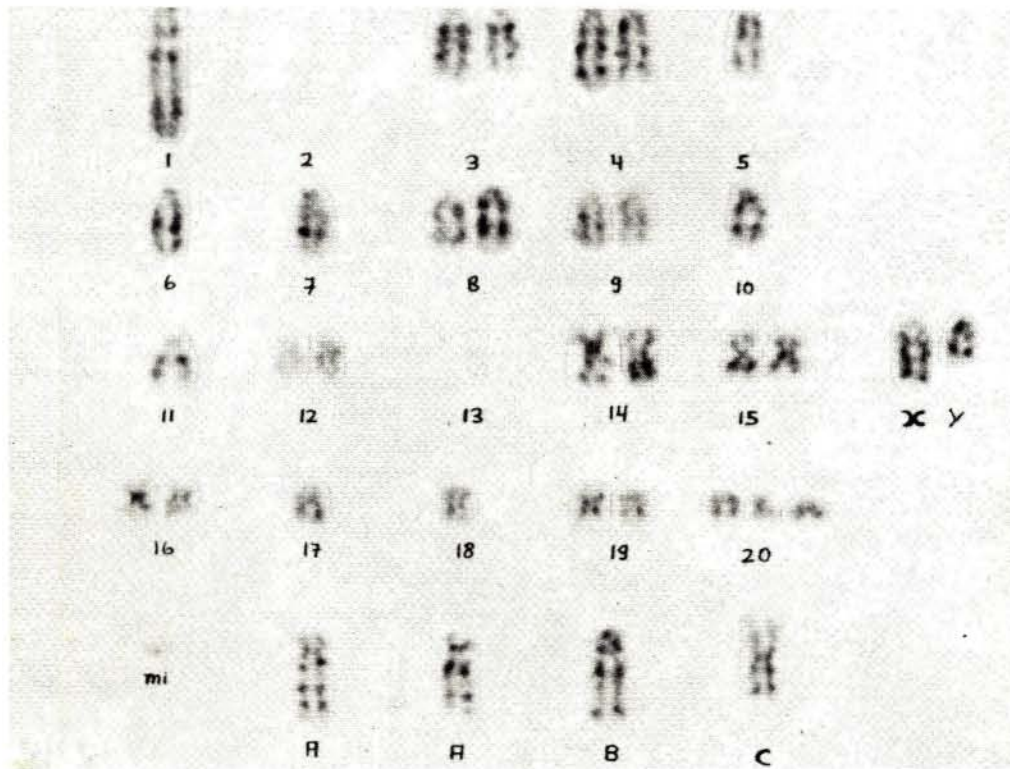 1 2 3 4 5
6 7 8 9 10
11 12 13 14 15 X Y
16 17 18 19 20
mi
A A B C